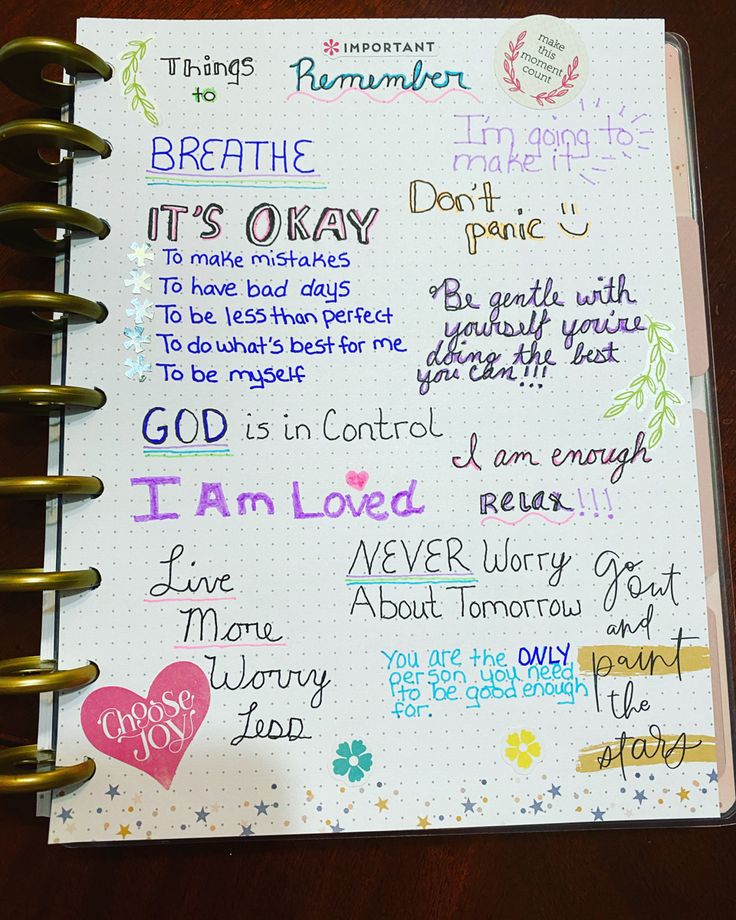 IMPORTANT
Things
to
Remember
make
this
moment
count
BREATHE
I'm going to
make it
IT'S OKAY
Don't
panic
To make mistakes
To have bad days
To be less than perfect
To do what's best for me
To be myself
Be gentle with
yourself you're
doing the best
you can!!!
GOD is in Control
I am enough
I Am Loved
RELAX!!!
Live
More
Worry
Less
NEVER Worry
About Tomorrow
go
out
and
paint
the
stars
You are the ONLY
person you need
to be good enough
for.
Choose
JOY